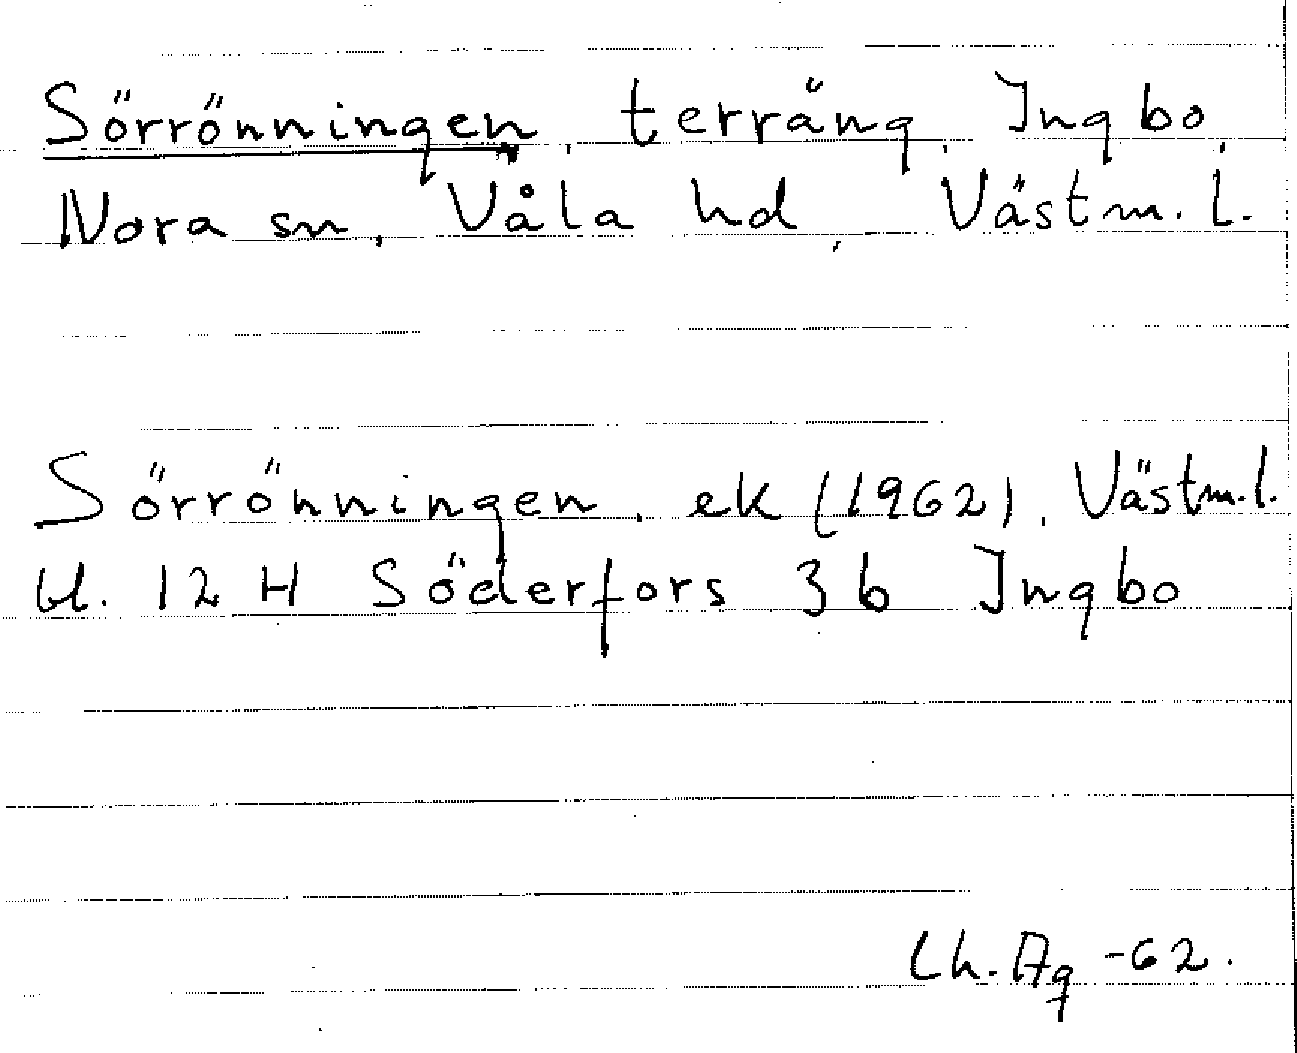 Sörrönningen, terräng, Ingbo,
Nora sn, Våla hd, Västm. l.
Sörrönningen, ek (1962), Västm.l.
bl. 12 H Söderfors 3 b Ingbo
Ch. Ag -62.